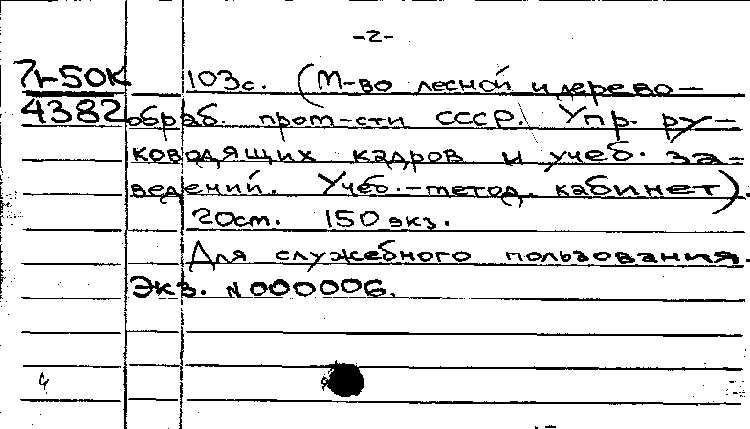 -2-
71-50К 103с. (М-во лесной и дерево-
4382 обраб. пром-сти СССР. Упр. ру-
ководящих кадров и учеб. за-
ведений. Учеб.-метод. кабинет).
20см. 150 экз.
Для служебного пользования.
Экз. N 000006.